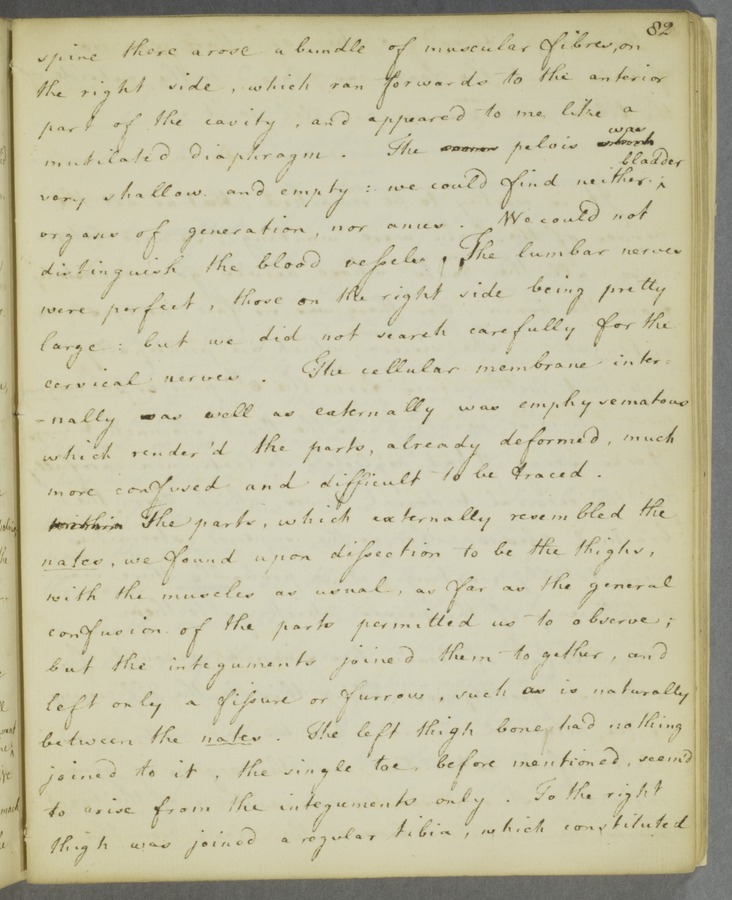 82
spine there arose a bundle of muscular fibres, on
the right side, which ran forwards to the anterior
part of the cavity, and appeared to me like a
mutilated diaphragm. The pelvis was
very shallow and empty: we could find neither bladder
organs of generation, nor anus. We could not
distinguish the blood vessels. The lumbar nerves
were perfect, those on the right side being pretty
large: but we did not search carefully for the
cervical nerves. The cellular membrane inter=
-nally as well as externally was emphysematous
which render'd the parts, already deformed, much
more confused and difficult to be traced.
within The parts, which externally resembled the
nates, we found upon dissection to be the thighs,
with the muscles as usual, as far as the general
confusion of the parts permitted us to observe;
but the integuments joined them together, and
left only a fissure or furrow, such as is naturally
between the nates. The left thigh bone had nothing
joined to it, the single toe, before mentioned, seem'd
to arise from the integuments only. To the right
thigh was joined a regular tibia, which constituted